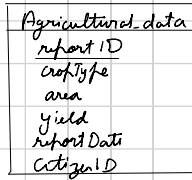 Agricultural_data
report ID
cropType
area
yield
reportDate
CitizenID